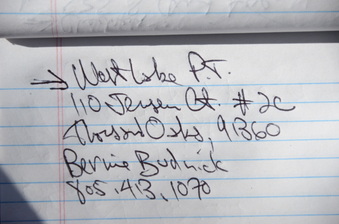 → West Lake P.T.
110 Jensen Ct. #2C
Thousand Oaks, 91360
Bernie Budnick
805.413.1070